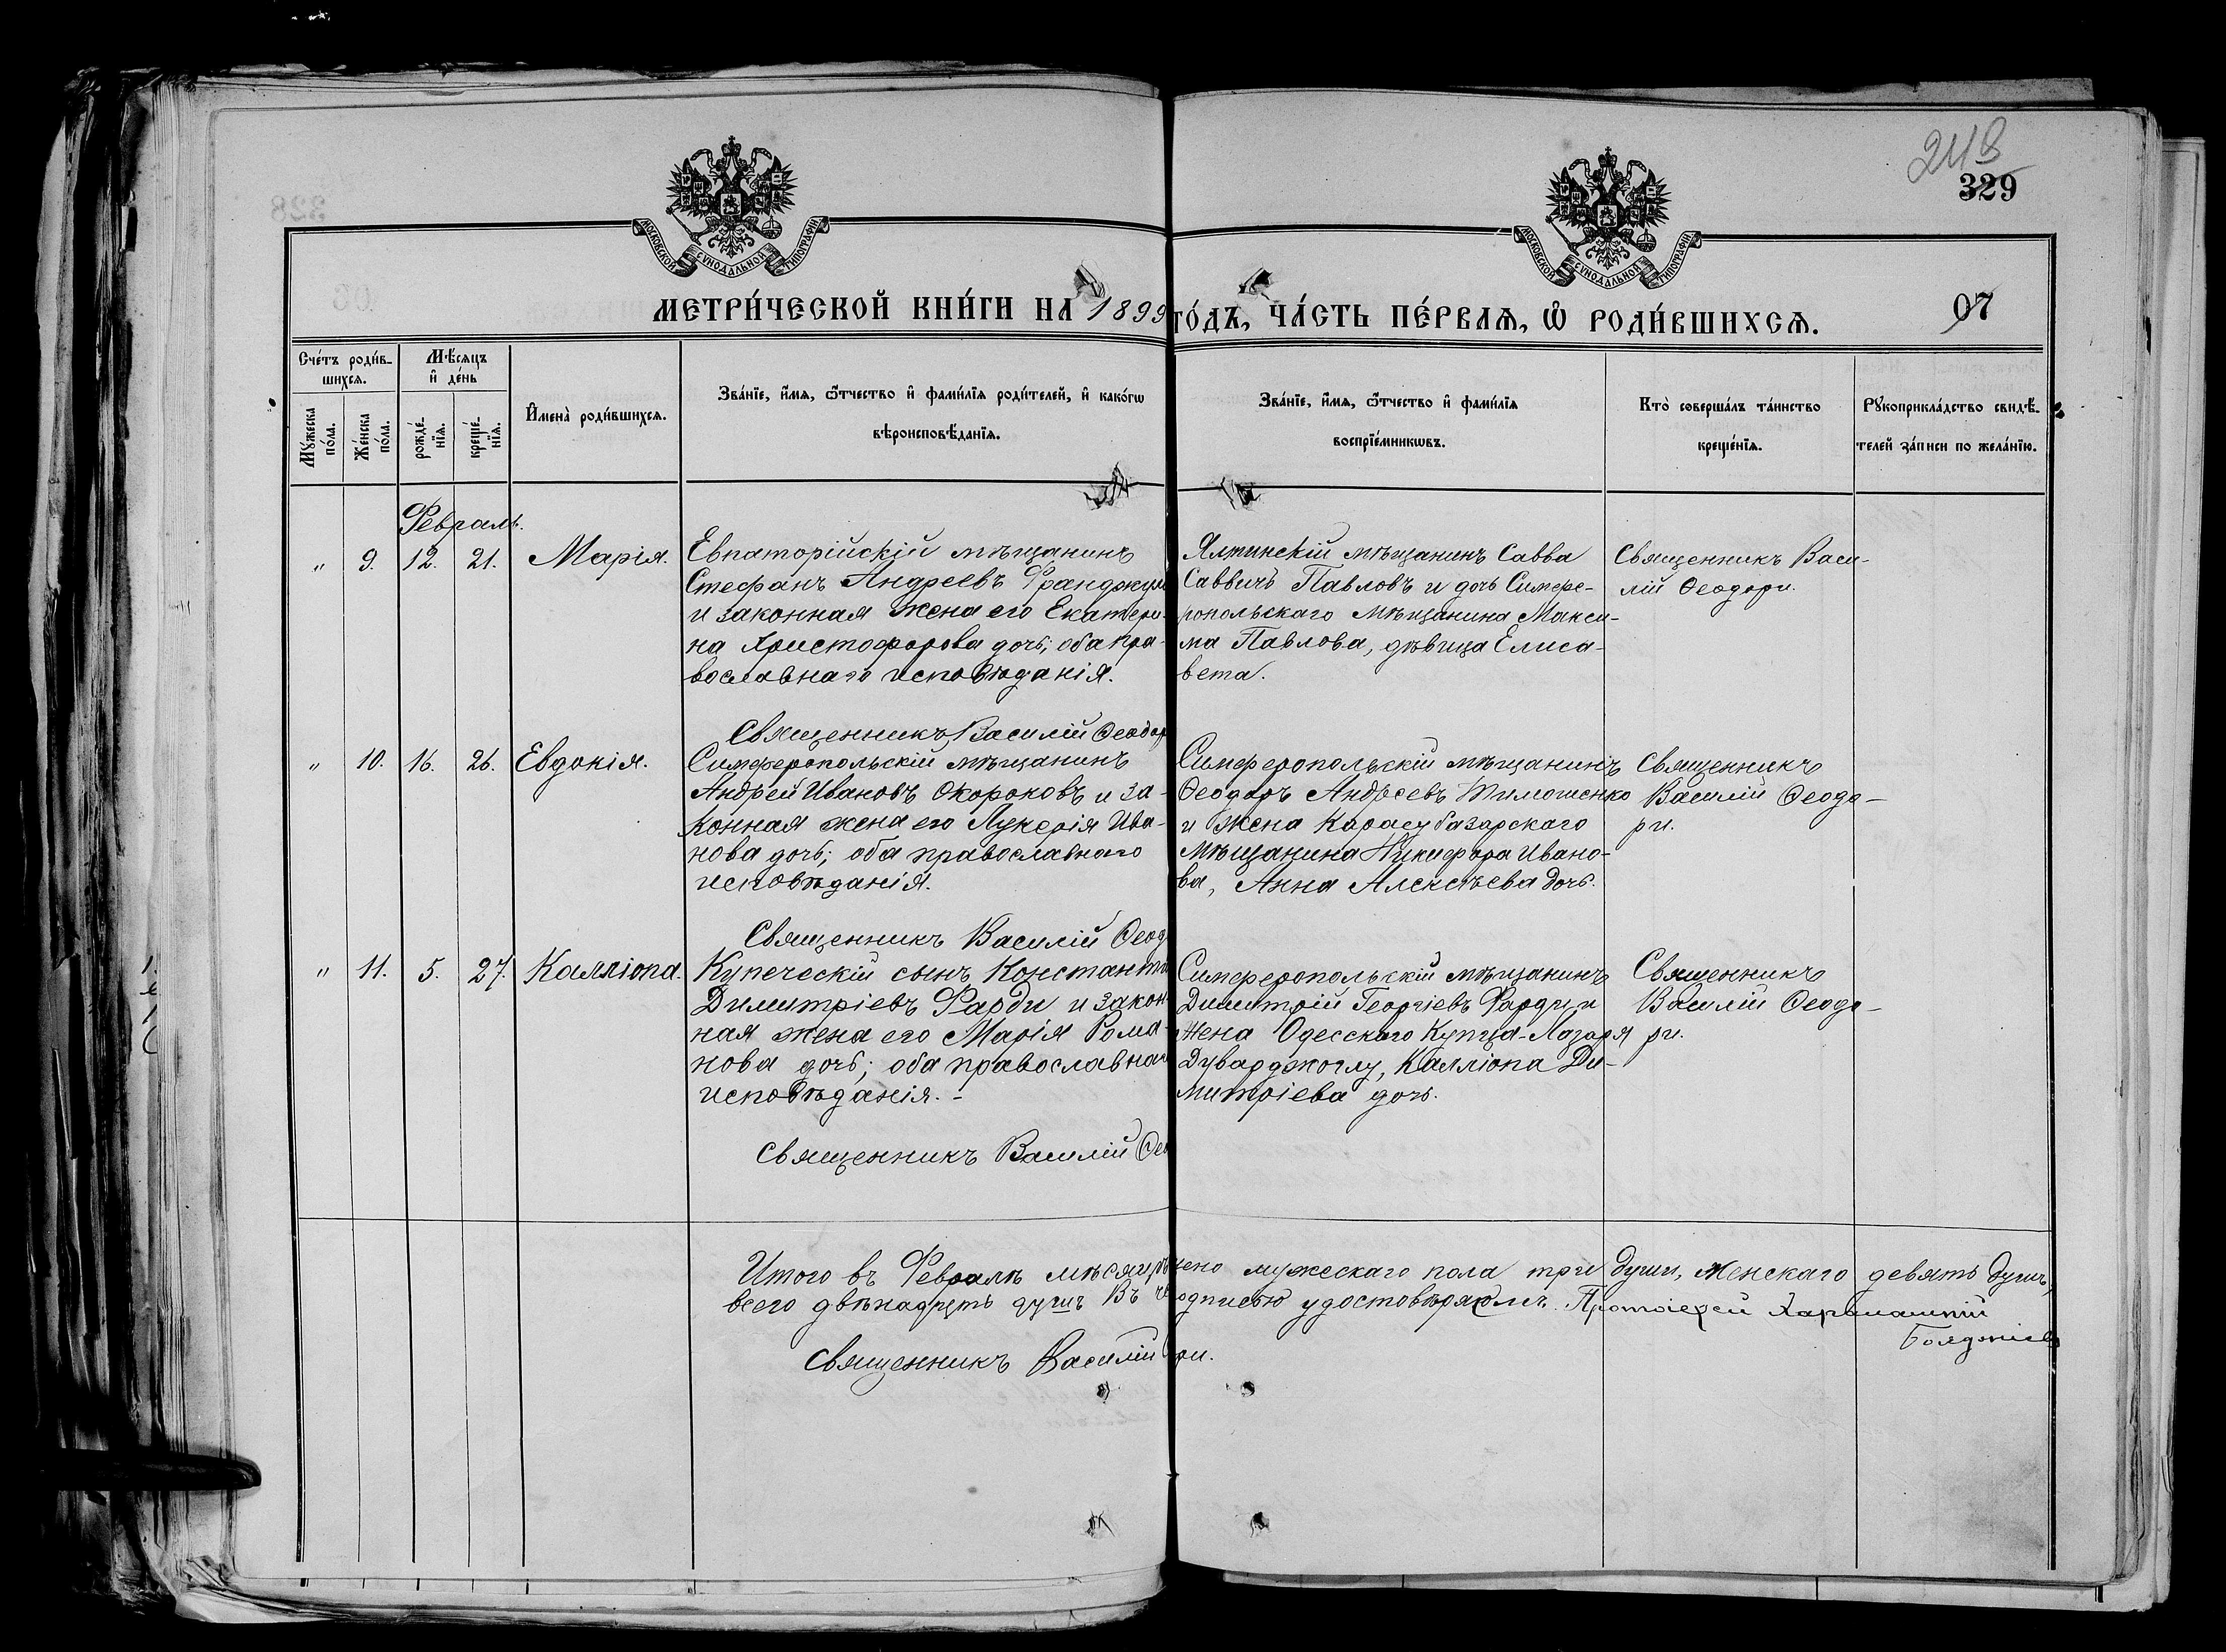 2118
329
МОСКОВСКОЙ СѴНОДАЛЬНОЙ ТИПОГРАФІИ
МОСКОВСКОЙ СѴНОДАЛЬНОЙ ТИПОГРАФІИ
МЕТРИ́ЧЕСКОЙ КНИ́ГИ НА 1899
ГО́ДЪ, ЧА́СТЬ ПЕ́РВАЯ, Ѽ РОДИ́ВШИХСЯ.
07
Сче́тъ роди́в-
шихся.
Мѣ́сяцъ
и҆ де́нь
Мꙋ́жеска
по́ла.
Же́нска
по́ла.
рожде́-
нїѧ.
креще́-
нїѧ.
И҆мена̀ роди́вшихсѧ.
Зва́нїе, и҆́мѧ, ѻ҆́тчество и҆ фами́лїѧ роди́телей, и҆ како́гѡ
вѣроисповѣ́данїѧ.
Зва́нїе, и҆́мѧ, ѻ҆́тчество и҆ фами́лїѧ
воспрїе́мникѡвъ.
Кто̀ соверша́лъ та́инство
креще́нїѧ.
Рꙋкоприкла́дство свидѣ́-
телей за́писи по жела́нїю.
Февраль.
" 9. 12. 21. Марія.
Евпаторійскій мѣщанинъ
Стефанъ Андреевъ Франджул
и законная жена его Екатери-
на Христофорова дочь; оба пра-
вославнаго исповѣданія.
Священникъ Василій Ѳеодор
Ялтинскій мѣщанинъ Савва
Саввичъ Павловъ и дочь Симфе-
ропольскаго мѣщанина Макси-
ма Павлова, дѣвица Елиса-
вета.
Священникъ Васи-
лій Ѳеодори.
" 10. 16. 26. Евдокія.
Симферопольскій мѣщанинъ
Андрей Ивановъ Окороковъ и за-
конная жена его Лукерія Ива-
нова дочь; оба православнаго
исповѣданія.
Священникъ Василій Ѳеод
Симферопольскій мѣщанинъ
Ѳеодоръ Андреевъ Тимошенко
и жена Карасубазарскаго
мѣщанина Никифора Ивано-
ва, Анна Алексѣева дочь.
Священникъ
Василій Ѳеодо-
ри.
" 11. 5. 27. Калліопа.
Купеческій сынъ Константи
Димитріевъ Фарди и закон-
ная жена его Марія Рома-
нова дочь; оба православнаг
исповѣданія. -
Священникъ Василій Ѳео
Симферопольскій мѣщанинъ
Димитрій Георгіевъ Фарди и
жена Одесскаго Купца Лазаря
Дуварджоглу, Калліопа Ди-
митріева дочь.
Священникъ
Василій Ѳеодо-
ри.
Итого въ Февралѣ мѣсяцѣ
всего двѣнадцать душъ Въ че
Священникъ Василій
ено мужескаго пола три души, женскаго девять душъ,
одписью удостовѣряемъ. Протоіерей Харлампій
Бояджіевъ
ри.